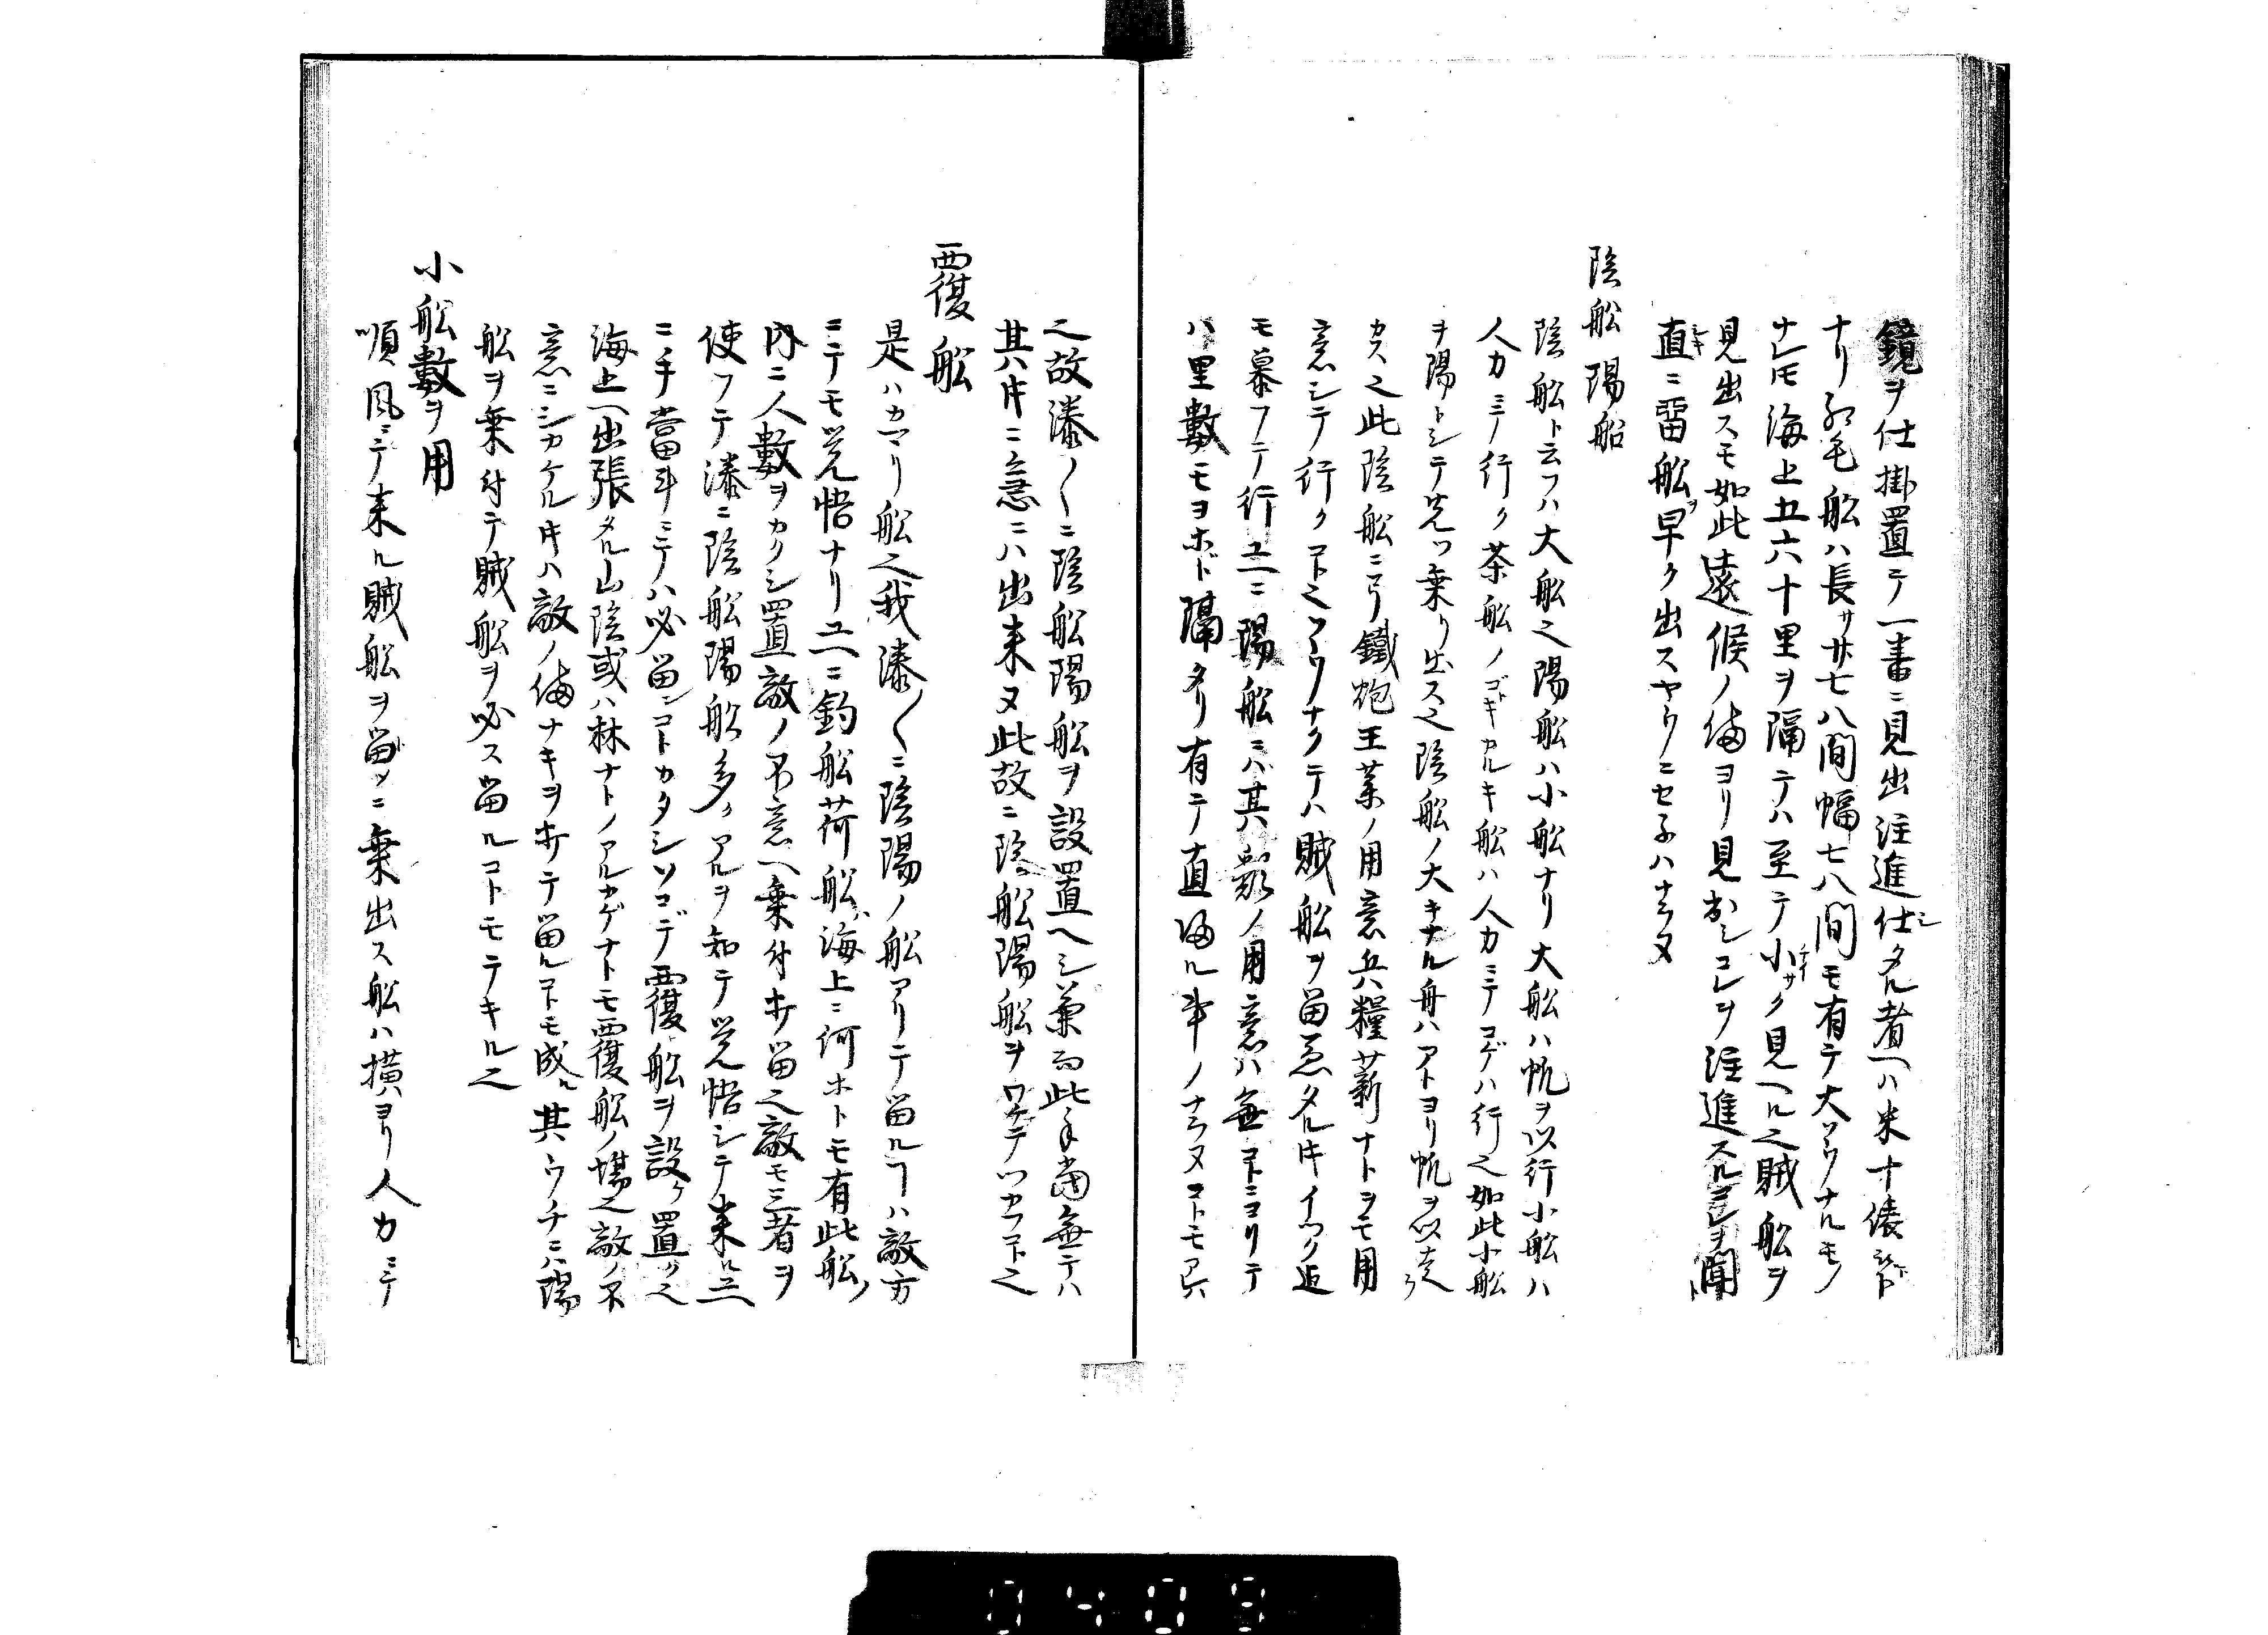 鏡ヲ仕掛置テ一番ニ見出注進仕タル者ヘハ米十俵
ナリ紅毛船ハ長サ廿七八間幅七八間モ有テ大ソウナルモノ
ナレ𪜈海上五六十里ヲ隔テハ至テ小サク見ヘル之賊船ヲ
見出スモ如此遠候ノ備ヨリ見出シコレヲ注進スルヲ聞ト
直ニ留船ヲ早ク出スヤウニセ子ハナラヌ
陰船陽船
陰船ト云フハ大船之陽船ハ小船ナリ大船ハ帆ヲ以行小船ハ
人力ニテ行ク茶船ノゴトキカルキ船ハ人力ニテコゲハ行之如此小船
ヲ陽トシテ先ヘ乗リ出ス之陰船ノ大キナル舟ハアトヨリ帆ヲ以走ラ
カス之此陰船ニヨリ鐵炮玉薬ノ用意兵糧薪ナトヲモ用
意シテ行クコト之ソウナクテハ賊船ヲ留〓タル片イツク迄
モ慕フテ行ユヘニ陽船ニハ其類ノ用意ハ無コトニヨリテ
ハ里數モヨホド隔タリ有テ直帰ル事ノナラヌコトモアル
之故湊〱ニ陰船陽船ヲ設置ヘシ兼而此手當無テハ
其片ニ急ニハ出来ヌ此故ニ陰船陽船ヲワケテツカフコト之
覆船
是ハカマリ船之我湊〱ニ陰陽ノ船アリテ留ルヿハ敵方
ニテモ覚悟ナリユヘニ釣船荷船ハ海上ニ何ホトモ有此船ノ
内ニ人數ヲカクシ置敵ノ不意ヘ乗付ケ留之敵モ三者ヲ
使フテ湊ニ陰船陽船多クアルヲ知テ覚悟シテ来ルユヘ
ニ手當斗ニテハ必留ルコトカタシソコデ覆船ヲ設ケ置ク之
海上ヘ出張タル山陰或ハ林ナトノアルカゲナトモ覆船ノ場之敵ノ不
意ニシカケル片ハ敵ノ備ナキヲ打テ留ルコトモ成ル其ウチニハ陽
船ヲ乗付テ賊船ヲ必ス留ルコトモテキル之
小船數ヲ用
順風ニテ来ル賊船ヲ留メニ乗出ス船ハ横ヨリ人力ニテ